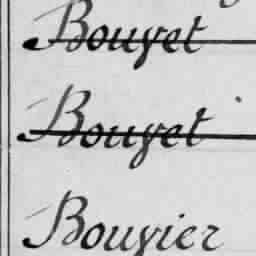 Bouyet
Bouyet
Bouvier